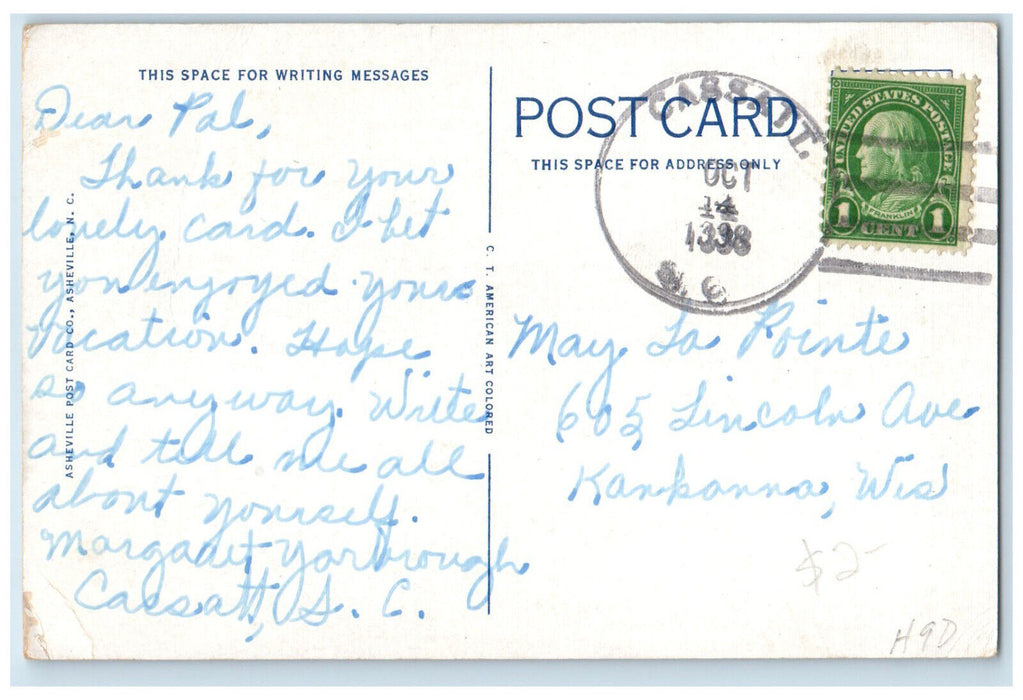 THIS SPACE FOR WRITING MESSAGES
Dear Pal,
Thank for your
lovely card. I bet
you enjoyed your
vacation. Hope
so anyway. Write
and tell me all
about yourself.
Margaret Yarbrough
Cassatt, S. C.
ASHEVILLE POST CARD CO., ASHEVILLE, N. C.
C. T. AMERICAN ART COLORED
POST CARD
THIS SPACE FOR ADDRESS ONLY
CASSATT.
OCT
14
1938
S. C.
UNITED STATES POSTAGE
FRANKLIN
1 CENT 1
May La Pointe
605 Lincoln Ave
Kankanna, Wis
$2-
H9D